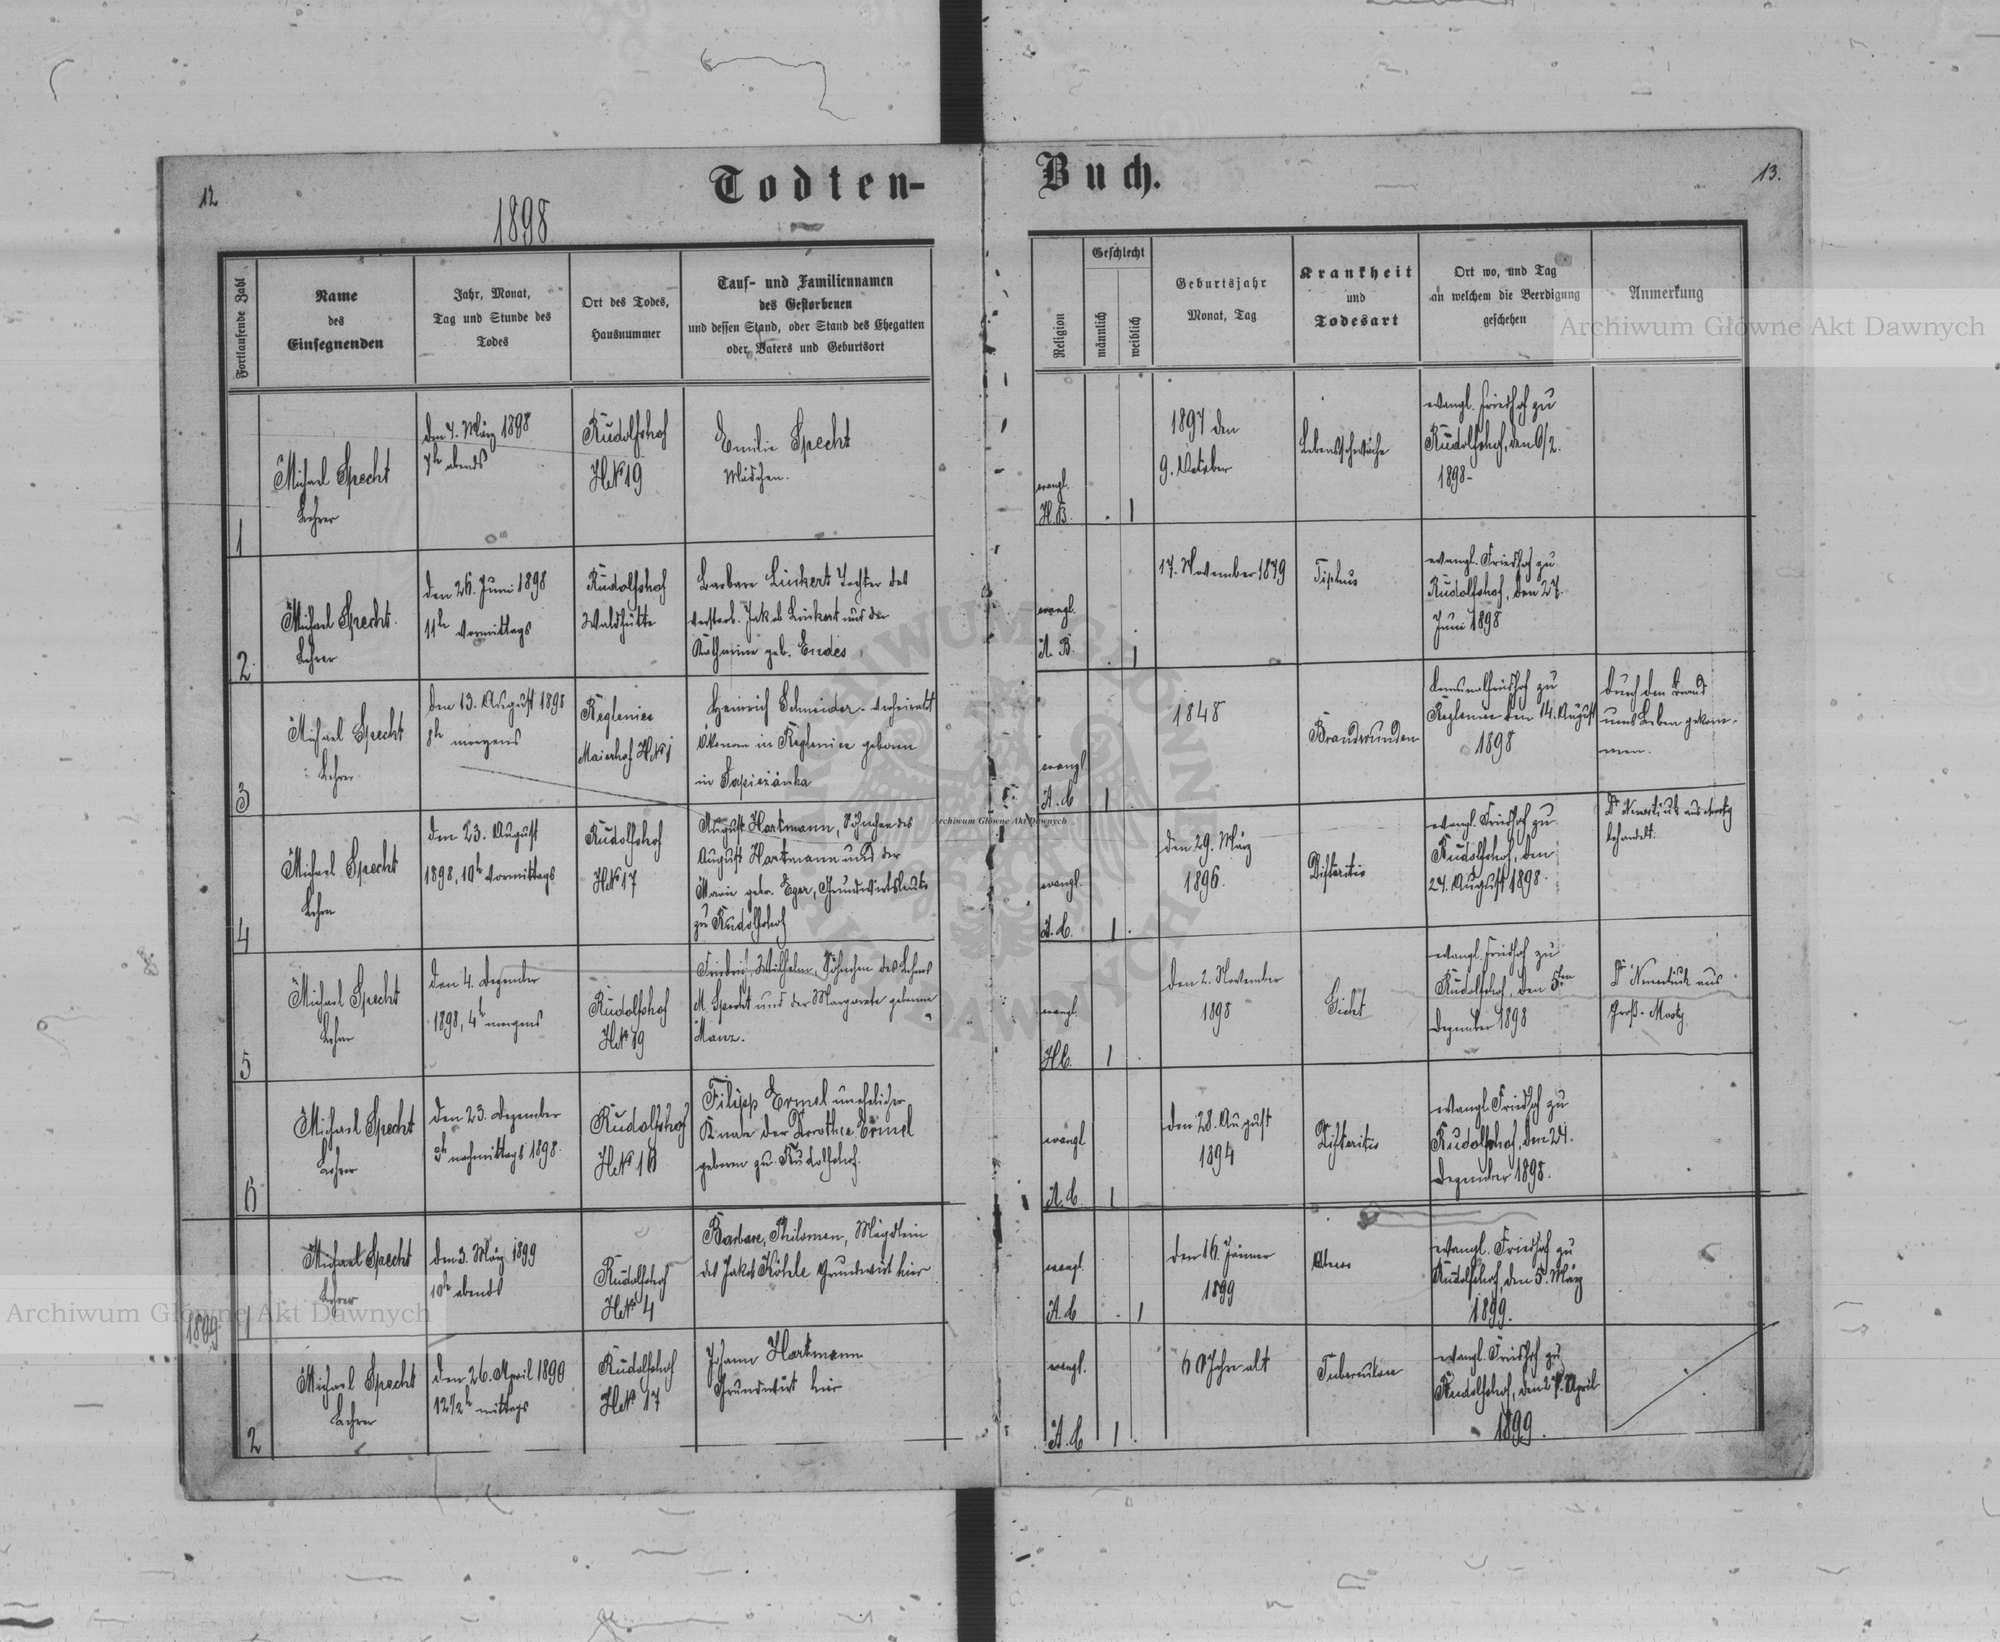 12
13.
Todten-Buch.
1898
Fortlaufende Zahl
Name
des
Einsegnenden
Jahr, Monat,
Tag und Stunde des
Todes
Ort des Todes,
Hausnummer
Tauf- und Familiennamen
des Gestorbenen
und dessen Stand, oder Stand des Ehegatten
oder Vaters und Geburtsort
Religion
Geschlecht
männlich
weiblich
Geburtsjahr
Monat, Tag
Krankheit
und
Todesart
Ort wo, und Tag
an welchem die Beerdigung
geschehen
Anmerkung
1
Michael Specht
Lehrer
den 4. März 1898
7h abends
Rudolfshof
H№ 19
Emilie Specht
Mädchen.
evangl.
H. B.
. 1
1897 den
9. October
Lebensschwäche
evangl. Friedhof zu
Rudolfshof, den 6/2.
1898-
2
Michael Specht.
Lehrer
den 26. Juni 1898
11h Vormittags
Rudolfshof
Waldhütte
Barbara Linkert Tochter des
verstorb. Jakob Linkert und der
Katharina geb. Endes
evangl.
A. B.
. 1
17. November 1879
Tiphus
evangl. Friedhof zu
Rudolfshof, den 27.
Juni 1898
3
Michael Specht
Lehrer
den 13. August 1898
8h morgens
Reglenice
Maierhof H№ 1
Heinrich Schneider - verheiratet
Ökonom in Reglenice geboren
in Sapieżanka
evangl
A. C
1 .
1848
Brandwunden
Reglenice den 14. August
1898
durch den Brand
ums Leben gekom-
men.
4
Michael Specht
Lehrer
den 23. August
1898, 10h Vormittags
Rudolfshof
H№ 17
August Hartmann, Söhnchen des
August Hartmann und der
Marie gebr. Eger, Grundwirtsleute
zu Rudolfshof
evangl.
A. C.
1 .
den 29. März
1896.
Difteritis
evangl. Friedhof zu
Rudolfshof, den
24. August 1898.
behandelt.
5
Michael Specht
Lehrer
den 4. Dezember
1898, 4h morgens
Rudolfshof
H№ 19
Friedrich, Wilhelm, Söhnchen des Lehrers
M. Specht und der Margarete geborene
Manz.
evangl
H C.
1 .
den 2. November
1898
Gicht
evangl. Friedhof zu
Rudolfshof, den 5ten
Dezember 1898
aus
Groß-Mosty
6
Michael Specht
Lehrer
den 23. Dezember
nachmittags 1898.
Rudolfshof
H№ 16
Filipp Ermel unehelicher
Knabe der Dorothea Ermel
geboren zu Rudolfshof.
evangl
A. C
1
den 28. August
1894
Difteritis
evangl. Friedhof zu
Rudolfshof, den 24.
Dezember 1898.
1899
1
Michael Specht
Lehrer
den 3. März 1899
10h abends
Rudolfshof
H№ 4
Barbara, Philomen, Mägdlein
des Jakob Köhle Grundwirt hier
evangl.
A. C
. 1
den 16. Jänner
1899
evangl. Friedhof zu
Rudolfshof, den 5. März
1899.
2
Michael Specht
Lehrer
den 26. April 1899
12 1/2h mittags
Rudolfshof
H№ 17
Johann Hartmann
Grundwirt hier
evangl.
A. C
1 .
60 Jahre alt
Tuberculose
evangl. Friedhof zu
Rudolfshof, den 27. April
1899.
Archiwum Główne Akt Dawnych
Archiwum Główne Akt Dawnych
Archiwum Główne Akt Dawnych
ARCHIWUM GŁÓWNE AKT DAWNYCH